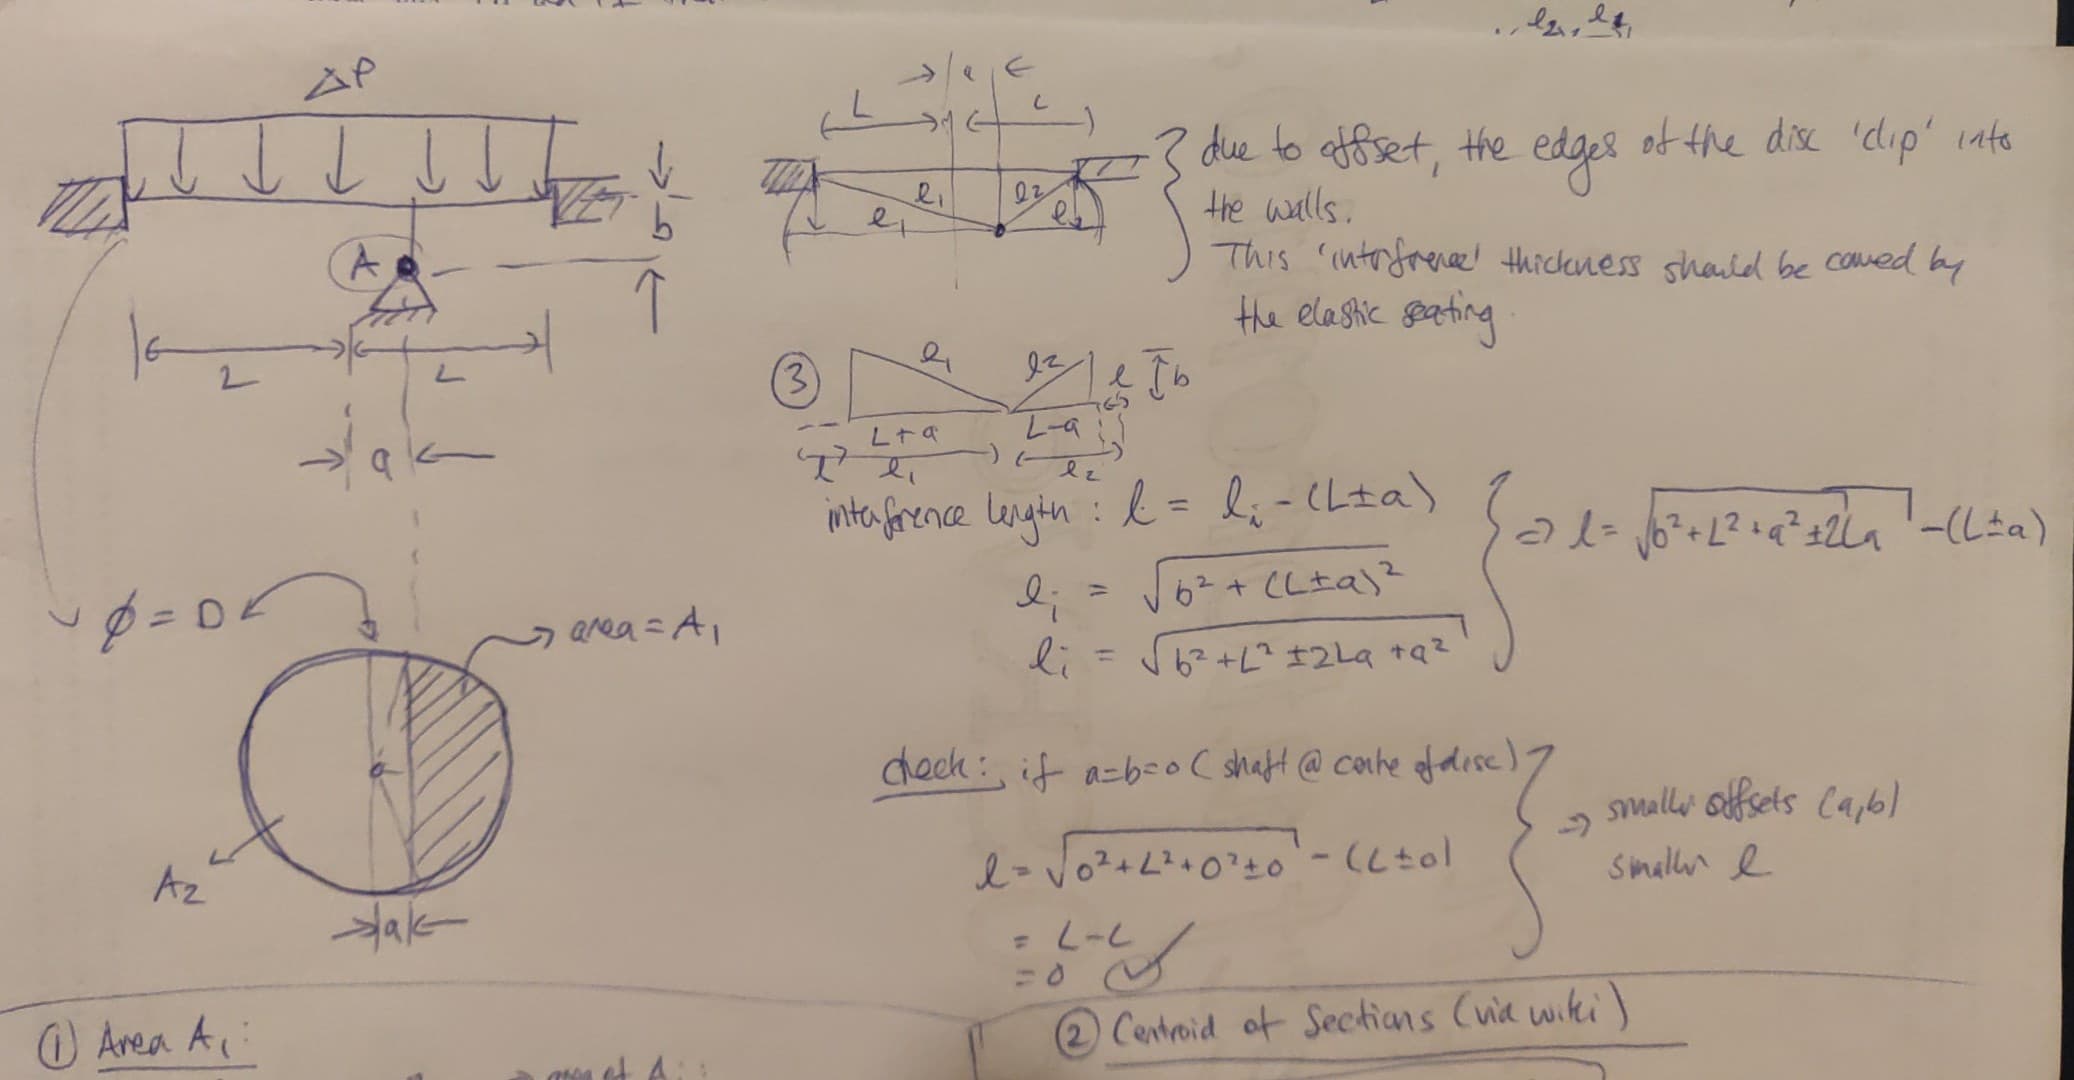 l₂, l₁
ΔP
b
A
L
L
a
φ = D
area = A₁
A₂
a
→ a ←
L
L
l₁
l₂
l₁
l₂
due to offset, the edges of the disc 'clip' into
the walls.
This 'interference' thickness should be caused by
the elastic seating.
③
l₁
l₂
l
b
L+a
L-a
l
l₁
l₂
interference length : l = lᵢ - (L±a)
lᵢ = √b² + (L±a)²
lᵢ = √b² + L² ± 2La + a²
⇒ l = √b² + L² + a² ± 2La - (L±a)
check: if a=b=0 (shaft @ centre of disc)
l = √0² + L² + 0² ± 0 - (L±0)
= L-L
= 0 ✓
⇒ smaller offsets (a,b)
smaller l
① Area A₁:
② Centroid of Sections (via wiki)